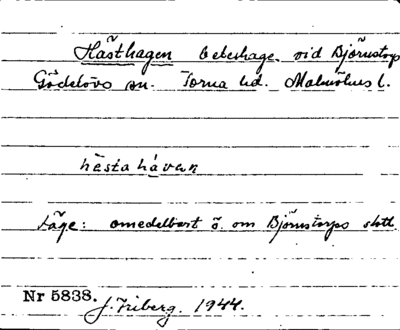 Hästhagen beteshage vid Björnstorp
Gödelövs sn. Torna hd. Malmöhus l.
hèstahávan
Läge: omedelbart ö. om Björnstorps slott.
Nr 5838. J. Friberg. 1944.